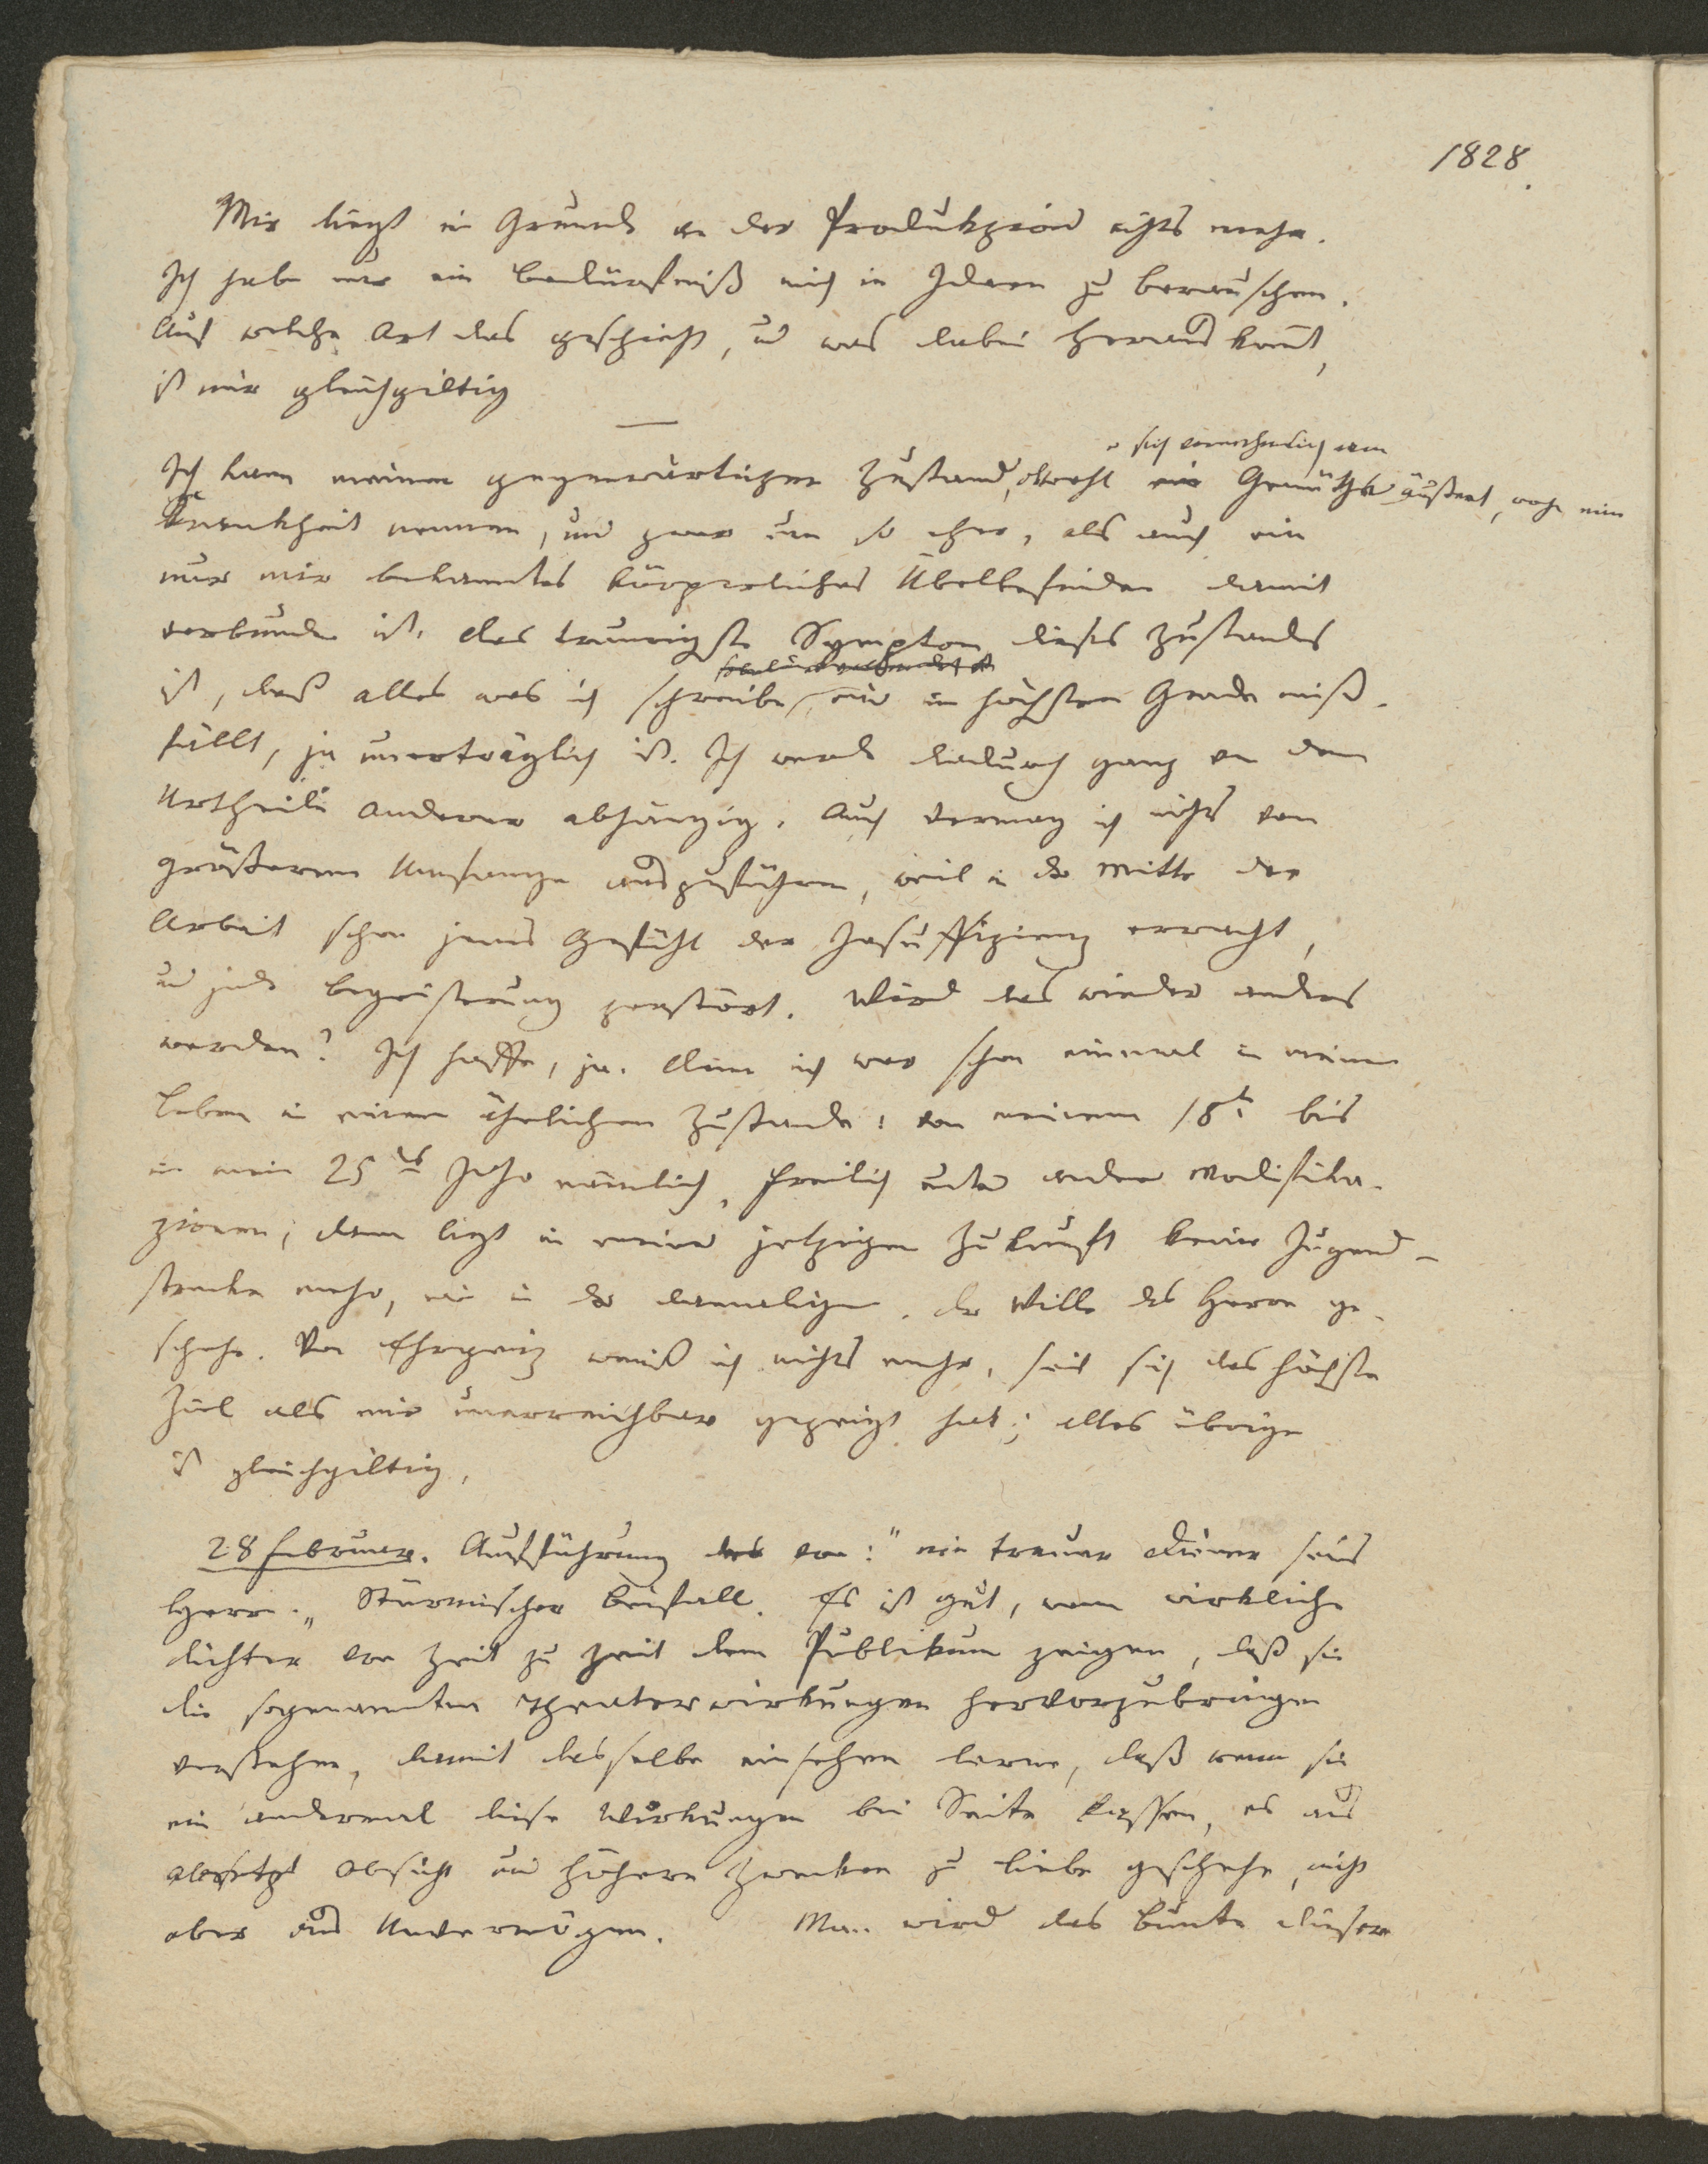 1828.
Mir liegt im Grunde an der Produkzion nichts mehr.
Ich habe nur ein Bedürfniß mich in Ideen zu berauschen.
Auf welche Art das geschieht, und was dabei heraus kommt,
ist mir gleichgiltig
—
er sich vornehmlich am
Ich kann meinen gegenwärtigen Zustand, obwohl Gemüthe äußert, wohl eine
Krankheit nennen, und zwar um so eher, als auch ein
nur mir bekanntes körperliches Übelbefinden damit
verbunden ist. Das traurigste Symptom dieses Zustandes
ist, daß alles was ich schreibe, mir im höchsten Grade miß-
fällt, ja unerträglich ist. Ich werde dadurch ganz von dem
Urtheile anderer abhängig. Auch vermag ich nichts von
größerem Umfange auszuführen, weil in der Mitte der
Arbeit schon jenes Gefühl der Insuffizienz erwacht,
und jede Begeisterung zerstört. Wird das wieder anders
werden? Ich hoffe, ja. Denn ich war schon einmal in meinem
Leben in einem ähnlichen Zustande: von meinem 18t. bis
in mein 25tes Jahr nämlich, freilich unter andern Modifika-
zionen; denn liegt in meiner jetzigen Zukunft keine Jugend-
strecke mehr, wie in der damaligen. Der Wille des Herrn ge-
schehe. Von Ehrgeitz weiß ich nichts mehr, seit sich das höchste
Ziel als mir unerreichbar gezeigt hat; alles übrige
ist gleichgiltig.
28 Februar. Aufführung des von: "ein treuer Diener seines
Herrn." Stürmischer Beifall. Es ist gut, wenn wirkliche
Dichter von Zeit zu Zeit dem Publikum zeigen, daß sie
die sogenannten Theaterwirkungen hervorzubringen
verstehen, damit dasselbe einsehen lerne, daß wenn sie
ein andermal diese Wirkungen bei Seite lassen, es aus
Absicht und höhern Zwecken zu liebe geschehe, nicht
aber aus Unvermögen. Man wird das Bunte dieser